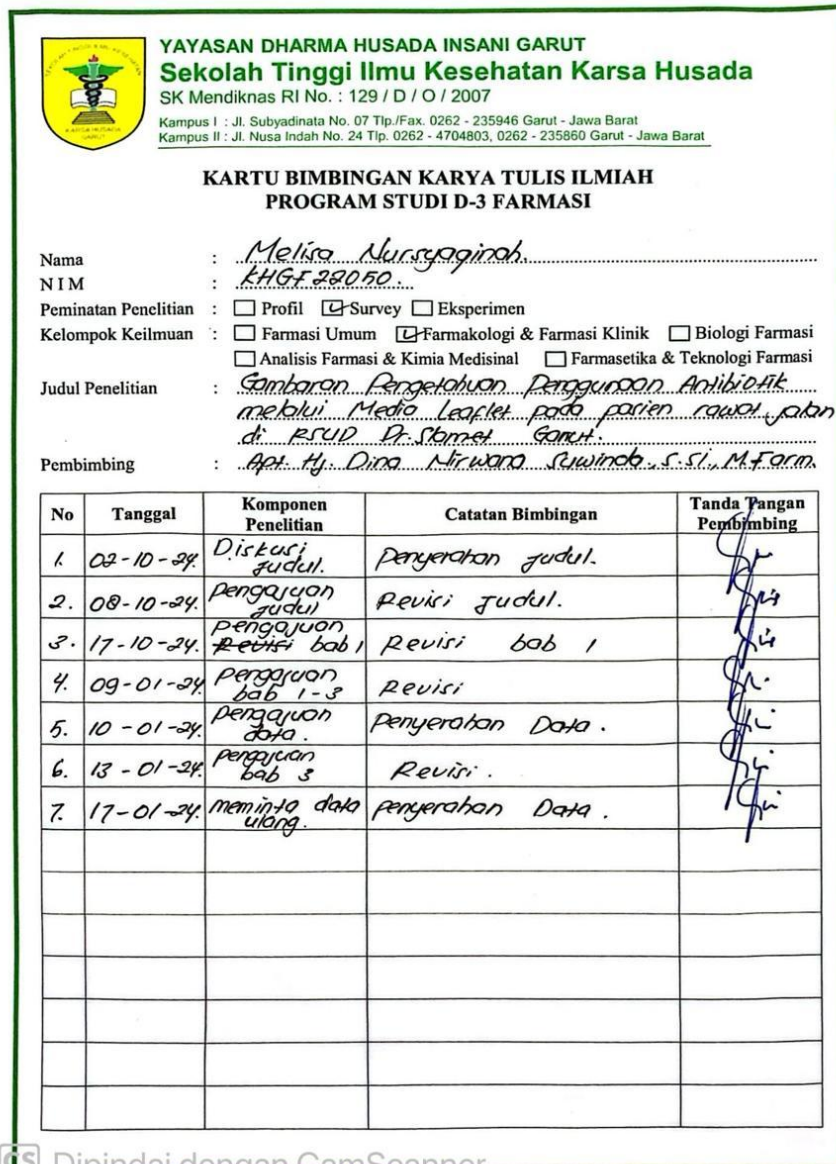 YAYASAN DHARMA HUSADA INSANI GARUT
Sekolah Tinggi Ilmu Kesehatan Karsa Husada
SK Mendiknas RI No. : 129 / D / O / 2007
Kampus I : Jl. Subyadinata No. 07 Tlp./Fax. 0262 - 235946 Garut - Jawa Barat
Kampus II : Jl. Nusa Indah No. 24 Tlp. 0262 - 4704803, 0262 - 235860 Garut - Jawa Barat
KARSA HUSADA
GARUT
KARTU BIMBINGAN KARYA TULIS ILMIAH
PROGRAM STUDI D-3 FARMASI
Nama : Melisa Nursyaqinah.
N I M : KHGF22050.
Peminatan Penelitian : Profil Survey Eksperimen
Kelompok Keilmuan : Farmasi Umum Farmakologi & Farmasi Klinik Biologi Farmasi
Analisis Farmasi & Kimia Medisinal Farmasetika & Teknologi Farmasi
Judul Penelitian : Gambaran Pengetahuan Penggunaan Antibiotik
melalui Media Leaflet pada pasien rawat jalan
di RSUD Dr. Slamet Garut.
Pembimbing : Apt. Hj. Dina Nirwana Suwinda., S.Si., M.Farm.
No Tanggal Komponen Penelitian Catatan Bimbingan Tanda Tangan Pembimbing
1. 02-10-24. Diskusi judul. Penyerahan judul.
2. 08-10-24. Pengajuan judul Revisi judul.
3. 17-10-24. pengajuan Revisi bab 1 Revisi bab 1
4. 09-01-24. Pengajuan bab 1-3 Revisi
5. 10-01-24. pengajuan data. Penyerahan Data.
6. 13-01-24. pengajuan bab 3 Revisi.
7. 17-01-24. meminta data ulang. penyerahan Data.
CS Dipindai dengan CamScanner